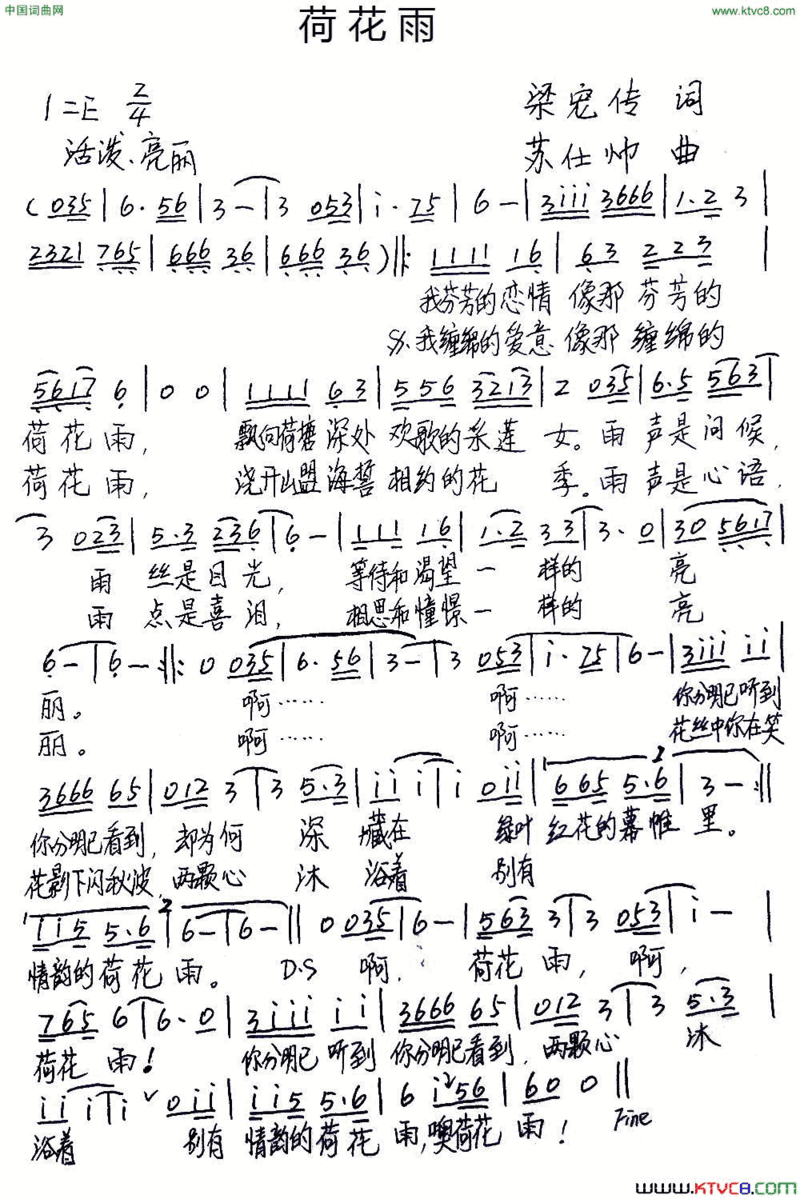 中国词曲网
www.ktvc8.com
荷花雨
1=E 2/4
梁宏传 词
活泼、亮丽
苏仕帅 曲
( 035 | 6· 56 | 3 - | 3 053 | i· 75 | 6 - | 3iii 3666 | 1·2 3 |
2321 765 | 666 36 | 666 36 ) ‖: 1111 16 | 63 223 |
我芬芳的恋情 像那 芬芳的
我缠绵的爱意 像那 缠绵的
5617 6 | 0 0 | 1111 63 | 556 3213 | 2 035 | 6·5 563 |
荷花雨, 飘向荷塘深处 欢歌的采莲 女。雨 声是问候,
荷花雨, 浇开山盟海誓 相约的花 季。雨 声是心语,
3 023 | 5·3 236 | 6 - | 111 16 | 1·2 33 | 3· 0 | 30 5617 |
雨 丝是目光, 等待和渴望一 样的 亮
雨 点是喜泪, 相思和憧憬一 样的 亮
6 - | 6 - :‖: 0 035 | 6· 56 | 3 - | 3 053 | i· 75 | 6 - | 3iii ii |
丽。 啊…… 啊…… 你分明已听到
丽。 啊…… 啊…… 花丝中你在笑
3666 65 | 012 3 | 3 5·3 | ii i | i 0ii | 665 5·6 | 3 - :‖
你分明已看到, 却为何 深 藏在 绿叶 红花的幕帷 里。
花影下闪秋波, 两颗心 沐 浴着 别有
ii5 5·6 | 6 - | 6 - ‖ 0 035 | 6 - | 563 3 | 3 053 | i - |
情韵的荷花 雨。 D.S 啊, 荷花 雨, 啊,
765 6 | 6· 0 | 3iii ii | 3666 65 | 012 3 | 3 5·3 |
荷花 雨! 你分明已 听到 你分明已看到, 两颗心 沐
ii i | i 0ii | ii5 5·6 | 6 i²56 | 60 0 ‖
浴着 别有 情韵的荷花 雨,噢荷花 雨! Fine
www.KTVC8.com